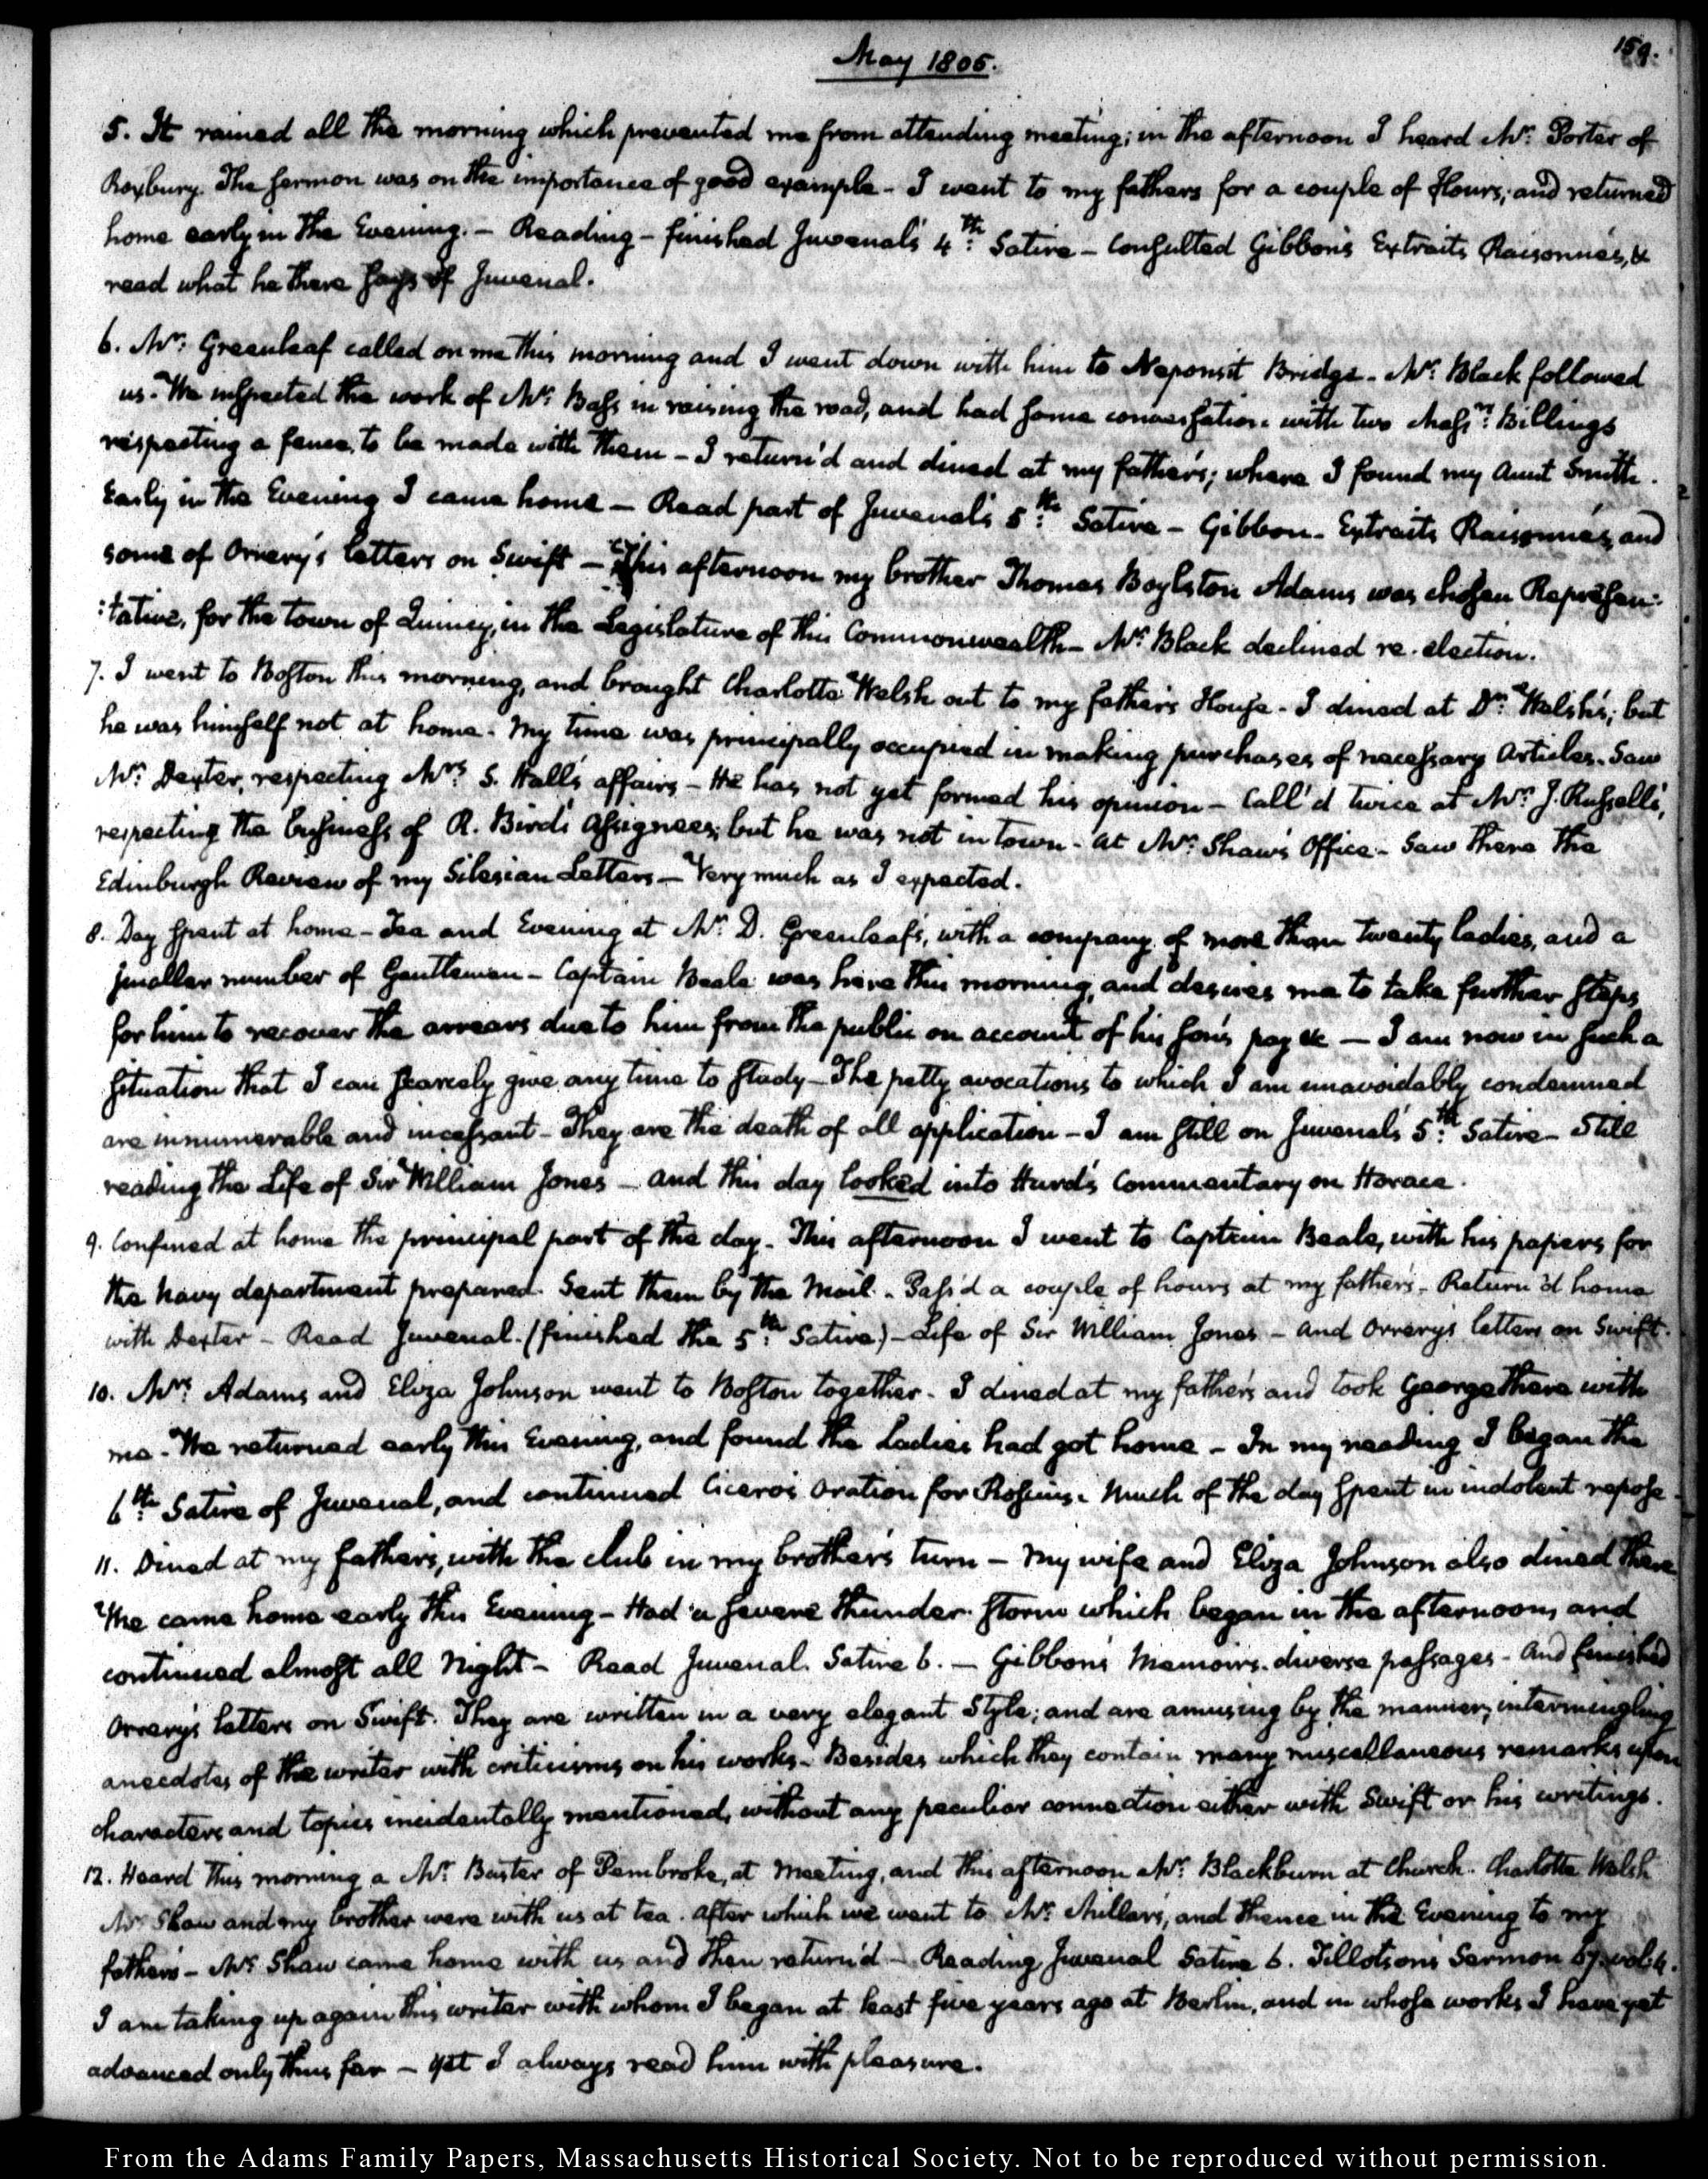 May 1805.
159.
5. It rained all the morning which prevented me from attending meeting; in the afternoon I heard Mr: Porter of
Roxbury. The sermon was on the importance of good example - I went to my fathers for a couple of Hours; and returned
home early in the Evening. - Reading - finished Juvenal's 4th: Satire - Consulted Gibbon's Extraits Raisonnés, &
read what he there says of Juvenal.
6. Mr: Greenleaf called on me this morning and I went down with him to Neponsit Bridge - Mr: Black followed
us. We inspected the work of Mr: Bass in raising the road, and had some conversation with two Messrs: Billings
respecting a fence, to be made with them - I return'd and dined at my father's; where I found my Aunt Smith.
Early in the Evening I came home - Read part of Juvenal's 5th: Satire - Gibbon - Extraits Raisonnés, and
some of Orrery's letters on Swift - This afternoon my brother Thomas Boylston Adams was chosen Represen-
:tative, for the town of Quincy, in the Legislature of this Commonwealth - Mr: Black declined re-election.
7. I went to Boston this morning, and brought Charlotte Welsh out to my father's House - I dined at Dr: Welsh's; but
he was himself not at home - My time was principally occupied in making purchases of necessary Articles. Saw
Mr: Dexter, respecting Mrs: S. Hall's affairs - He has not yet formed his opinion - Call'd twice at Mr: J. Russell's,
respecting the business of R. Bird's assignees; but he was not in town - At Mr: Shaw's Office - Saw there the
Edinburgh Review of my Silesian Letters - Very much as I expected.
8. Day spent at home - Tea and Evening at Mr: D. Greenleaf's, with a company of more than twenty ladies, and a
smaller number of Gentlemen - Captain Beale was here this morning, and desires me to take further steps
for him to recover the arrears due to him from the public on account of his son's pay &c - I am now in such a
situation that I can scarcely give any time to study - The petty avocations to which I am unavoidably condemned
are innumerable and incessant - They are the death of all application - I am still on Juvenal's 5th: Satire - Still
reading the Life of Sir William Jones - and this day looked into Hurd's Commentary on Horace.
9. Confined at home the principal part of the day - This afternoon I went to Captain Beale, with his papers for
the Navy department prepared. Sent them by the Mail - Pass'd a couple of hours at my father's - Return'd home
with Dexter - Read Juvenal. (finished the 5th: Satire) - Life of Sir William Jones - and Orrery's letters on Swift.
10. Mrs: Adams and Eliza Johnson went to Boston together - I dined at my father's and took George there with
me - We returned early this Evening, and found the Ladies had got home - In my reading I began the
6th: Satire of Juvenal, and continued Cicero's Oration for Roscius. Much of the day spent in indolent repose.
11. Dined at my father's, with the club in my brother's turn - My wife and Eliza Johnson also dined there
We came home early this Evening - Had a severe thunder-storm which began in the afternoon, and
continued almost all Night - Read Juvenal. Satire 6. - Gibbon's Memoirs. diverse passages - And finished
Orrery's letters on Swift. They are written in a very elegant Style; and are amusing by the manner, intermingling
anecdotes of the writer with criticisms on his works - Besides which they contain many miscellaneous remarks upon
characters and topics incidentally mentioned, without any peculiar connection either with Swift or his writings.
12. Heard this morning a Mr: Baxter of Pembroke, at Meeting, and this afternoon Mr: Blackburn at Church. Charlotte Welsh
Mr: Shaw and my brother were with us at tea. After which we went to Mr: Millar's, and thence in the Evening to my
father's - Mr: Shaw came home with us and then return'd - Reading Juvenal Satire 6. Tillotson's Sermon 67. vol: 4.
I am taking up again this writer with whom I began at least five years ago at Berlin, and in whose works I have yet
advanced only thus far - yet I always read him with pleasure.
From the Adams Family Papers, Massachusetts Historical Society. Not to be reproduced without permission.